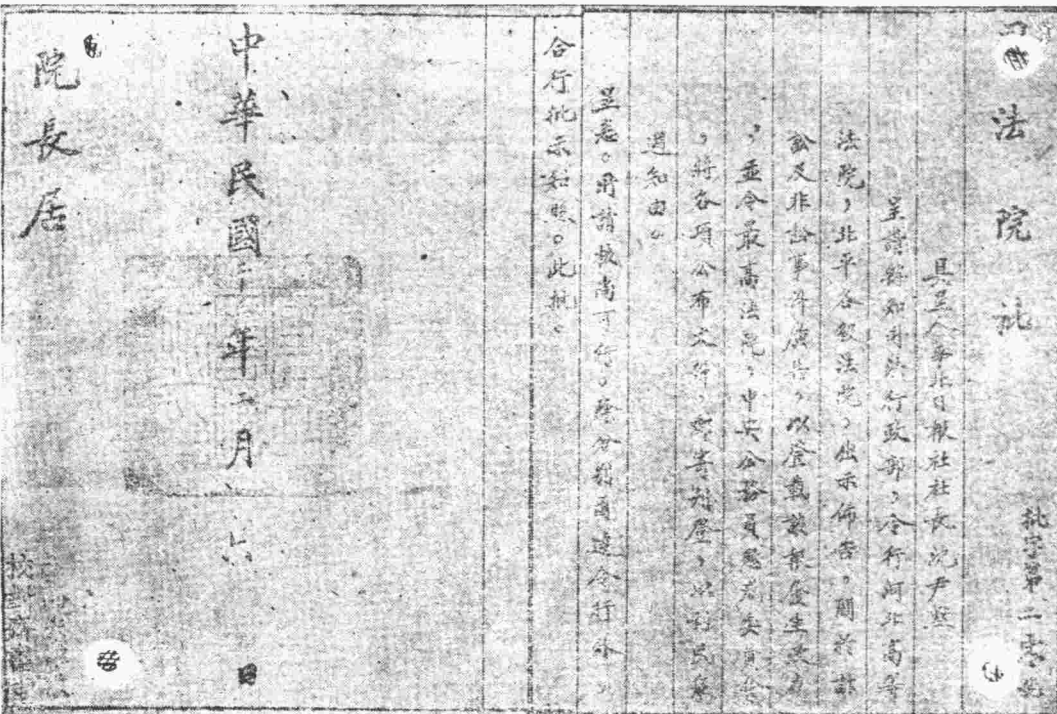 司法院批
批字第二零號
具呈人華北日報社社長沈尹默
呈請轉知司法行政部，令行河北高等
法院，北平各級法院，出示佈告，關於訴
訟及非訟事件廣告，以登載該報發生效力
，並令最高法院，中央公務員懲戒委員會
，將各項公布文件，
通知由。
呈悉。所請核尚可行，除分別函達令行外，
合行批示知照。此批。
中華民國二十一年二月六日
院長居